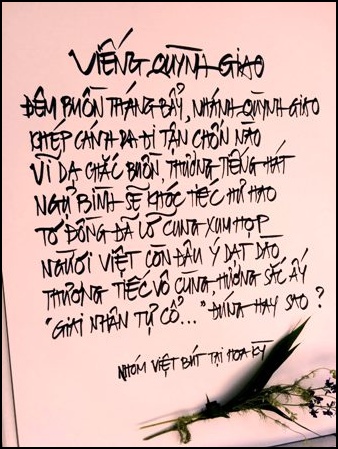 VIẾNG QUỲNH GIAO
ĐÊM BUỒN THÁNG BẢY, NHÁNH QUỲNH GIAO
KHÉP CÁNH RA ĐI TẬN CHỐN NÀO
VĨ DẠ CHẮC BUỒN, THƯƠNG TIẾNG HÁT
NGỰ BÌNH SẼ KHÓC TIẾC HƯ HAO
TƠ ĐỒNG ĐÃ LỠ CUNG XUM HỌP
NGƯỜI VIỆT CÒN ĐÂU Ý DẠT DÀO
THƯƠNG TIẾC VÔ CÙNG, HƯƠNG SẮC ẤY
"GIAI NHÂN TỰ CỔ..." ĐÚNG HAY SAO?
NHÓM VIỆT BÚT TẠI HOA KỲ